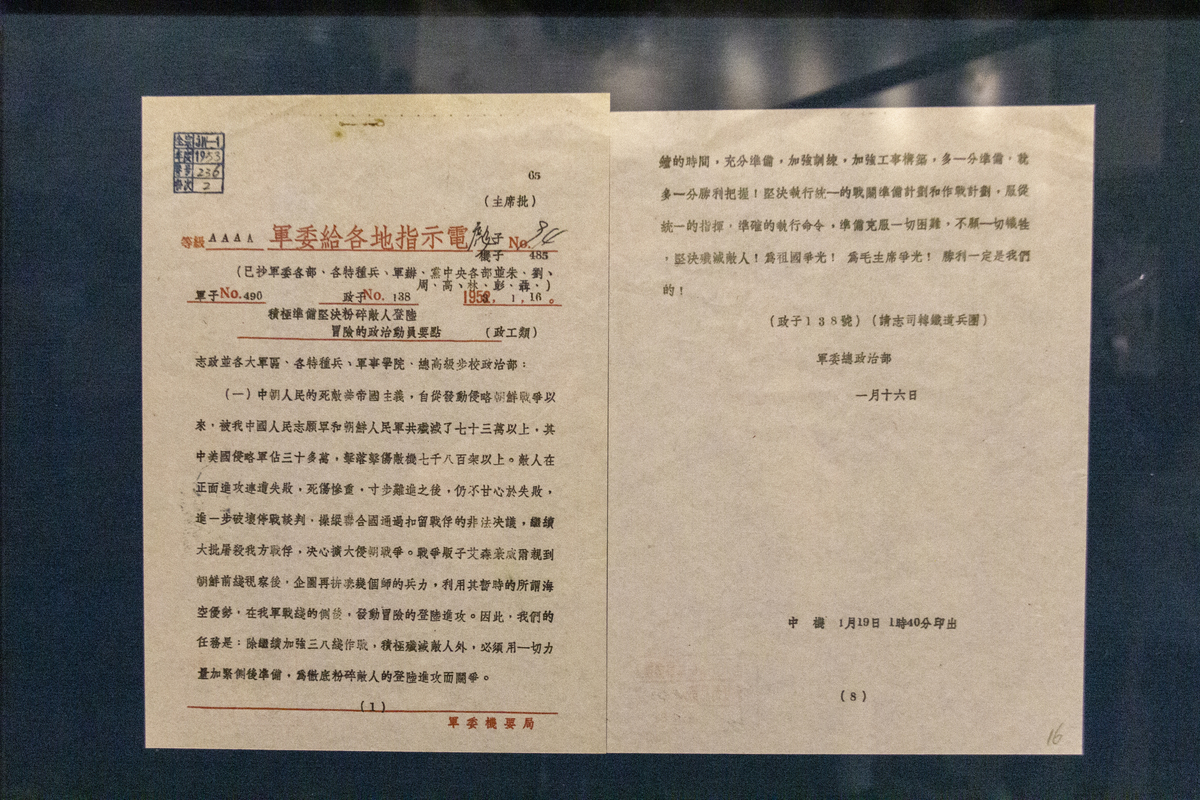 全宗 JW-1
年度 1953
卷号 236
件次 2
65
(主席批)
等級 AAAA 軍委給各地指示電 子 No. 94
機子 485
(已抄軍委各部、各特種兵、軍辦、黨中央各部並朱、劉、
周、高、林、彭、聶、)
軍子No.490 政子No. 138 1953, 1, 16。
積極準備堅決粉碎敵人登陸
冒險的政治動員要點 (政工類)
志政並各大軍區、各特種兵、軍事學院、總高級步校政治部：
(一)中朝人民的死敵美帝國主義，自從發動侵略朝鮮戰爭以
來，被我中國人民志願軍和朝鮮人民軍共殲滅了七十三萬以上，其
中美國侵略軍佔三十多萬，擊落擊傷敵機七千八百架以上。敵人在
正面進攻連遭失敗，死傷慘重，寸步難進之後，仍不甘心於失敗，
進一步破壞停戰談判、操縱聯合國通過扣留戰俘的非法決議，繼續
大批屠殺我方戰俘，決心擴大侵朝戰爭。戰爭販子艾森豪威爾親到
朝鮮前綫視察後，企圖再拚湊幾個師的兵力，利用其暫時的所謂海
空優勢，在我軍戰綫的側後，發動冒險的登陸進攻。因此，我們的
任務是：除繼續加強三八綫作戰，積極殲滅敵人外，必須用一切力
量加緊側後準備，為徹底粉碎敵人的登陸進攻而鬪爭。
(1)
軍委機要局
的時間，充分準備，加強訓練，加強工事構築，多一分準備，就
多一分勝利把握！堅決執行統一的戰鬪準備計劃和作戰計劃，服從
統一的指揮，準確的執行命令，準備克服一切困難，不顧一切犧牲
，堅決殲滅敵人！為祖國爭光！為毛主席爭光！勝利一定是我們
的！
(政子138號)(請志司轉鐵道兵團)
軍委總政治部
一月十六日
中 機 1月19日 1時40分印出
(8)
16